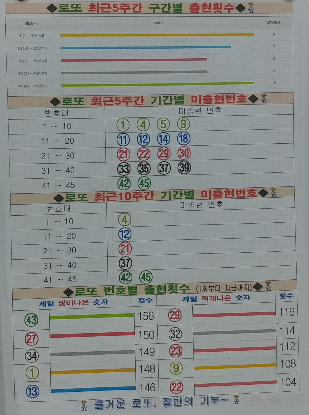 ◆로또 최근5주간 구간별 출현횟수◆
◆로또 최근5주간 기간별 미출현번호◆
번호대 미출현 번호
1 ~ 10 ① ④ ⑤ ⑨
11 ~ 20 ⑪ ⑫ ⑭ ⑱
21 ~ 30 ㉑ ㉒ ㉙ ㉚
31 ~ 40 ㉝ ㉟ ㊲ ㊴
41 ~ 45 ㊷ ㊺
◆로또 최근10주간 기간별 미출현번호◆
번호대 미출현 번호
1 ~ 10 ④
11 ~ 20 ⑫
21 ~ 30 ㉑
31 ~ 40 ㊲
41 ~ 45 ㊷ ㊺
◆로또 번호별 출현횟수 (1회부터 지금까지)◆
제일 많이나온 숫자 횟수 제일 적게나온 숫자 횟수
㊸ 156 ㉙ 116
㉗ 150 ㉜ 114
㉞ 149 ㉓ 112
① 148 ⑨ 108
⑬ 146 ㉒ 104
즐거운 로또, 절반의 기부~